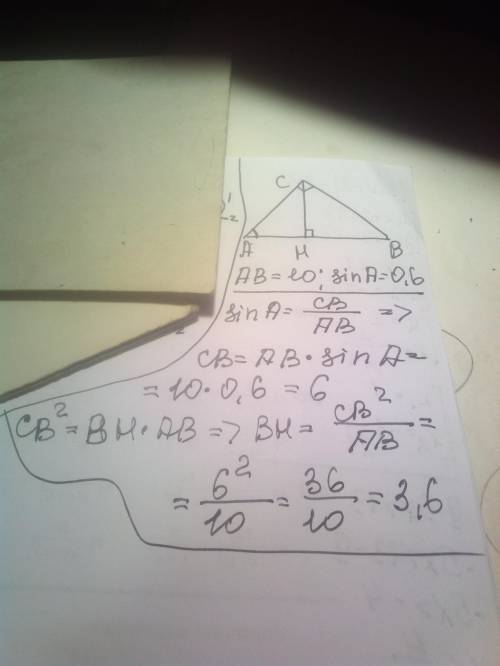 C
A H B
AB=10; sinA=0,6
sinA= CB/AB =>
CB=AB·sinA=
=10·0,6=6
CB²=BH·AB=>BH= CB²/AB =
= 6²/10 = 36/10 = 3,6